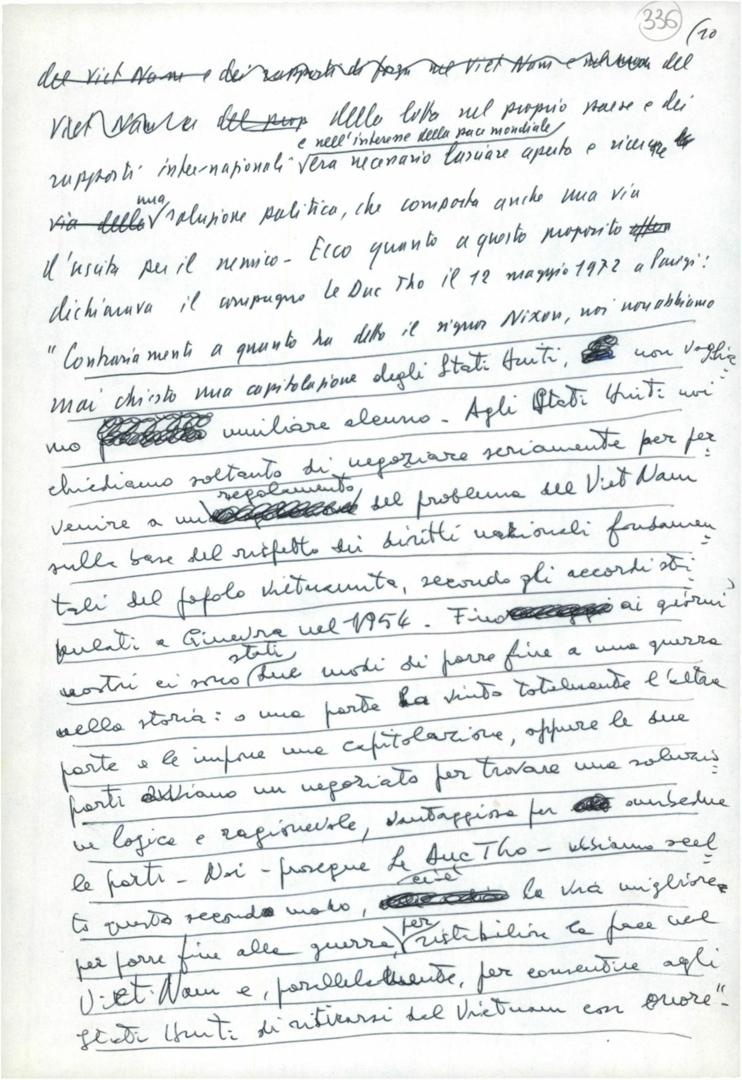 336
(10
del Viet Nam e dei rapporti di forza nel Viet Nam e del
Viet Nam e della lotta nel proprio paese e dei
e nell'interesse della pace mondiale
rapporti internazionali era necessario lasciare aperta e ricercare
una
via della soluzione politica, che comporta anche una via
d'uscita per il nemico - Ecco quanto a questo proposito
dichiarava il compagno Le Duc Tho il 12 maggio 1972 a Parigi:
"Contrariamente a quanto ha detto il signor Nixon, noi non abbiamo
mai chiesto una capitolazione degli Stati Uniti, non voglia
mo umiliare alcuno - Agli Stati Uniti noi
chiediamo soltanto di negoziare seriamente per per
regolamento
venire a un del problema del Viet Nam
sulla base del rispetto dei diritti nazionali fondamen
tali del popolo vietnamita, secondo gli accordi sti
pulati a Ginevra nel 1954. Fino ai giorni
stati
nostri ci sono due modi di porre fine a una guerra
nella storia: o una parte ha vinto totalmente l'altra
parte e le impone una capitolazione, oppure le due
parti avviano un negoziato per trovare una soluzio
ne logica e ragionevole, vantaggiosa per ambedue
le parti - Noi - prosegue Le Duc Tho - abbiamo scel
cioè
to questo secondo modo, la via migliore
per
per porre fine alla guerra, ristabilire la pace nel
Viet Nam e, parallelamente, per consentire agli
Stati Uniti di ritirarsi dal Vietnam con onore" -